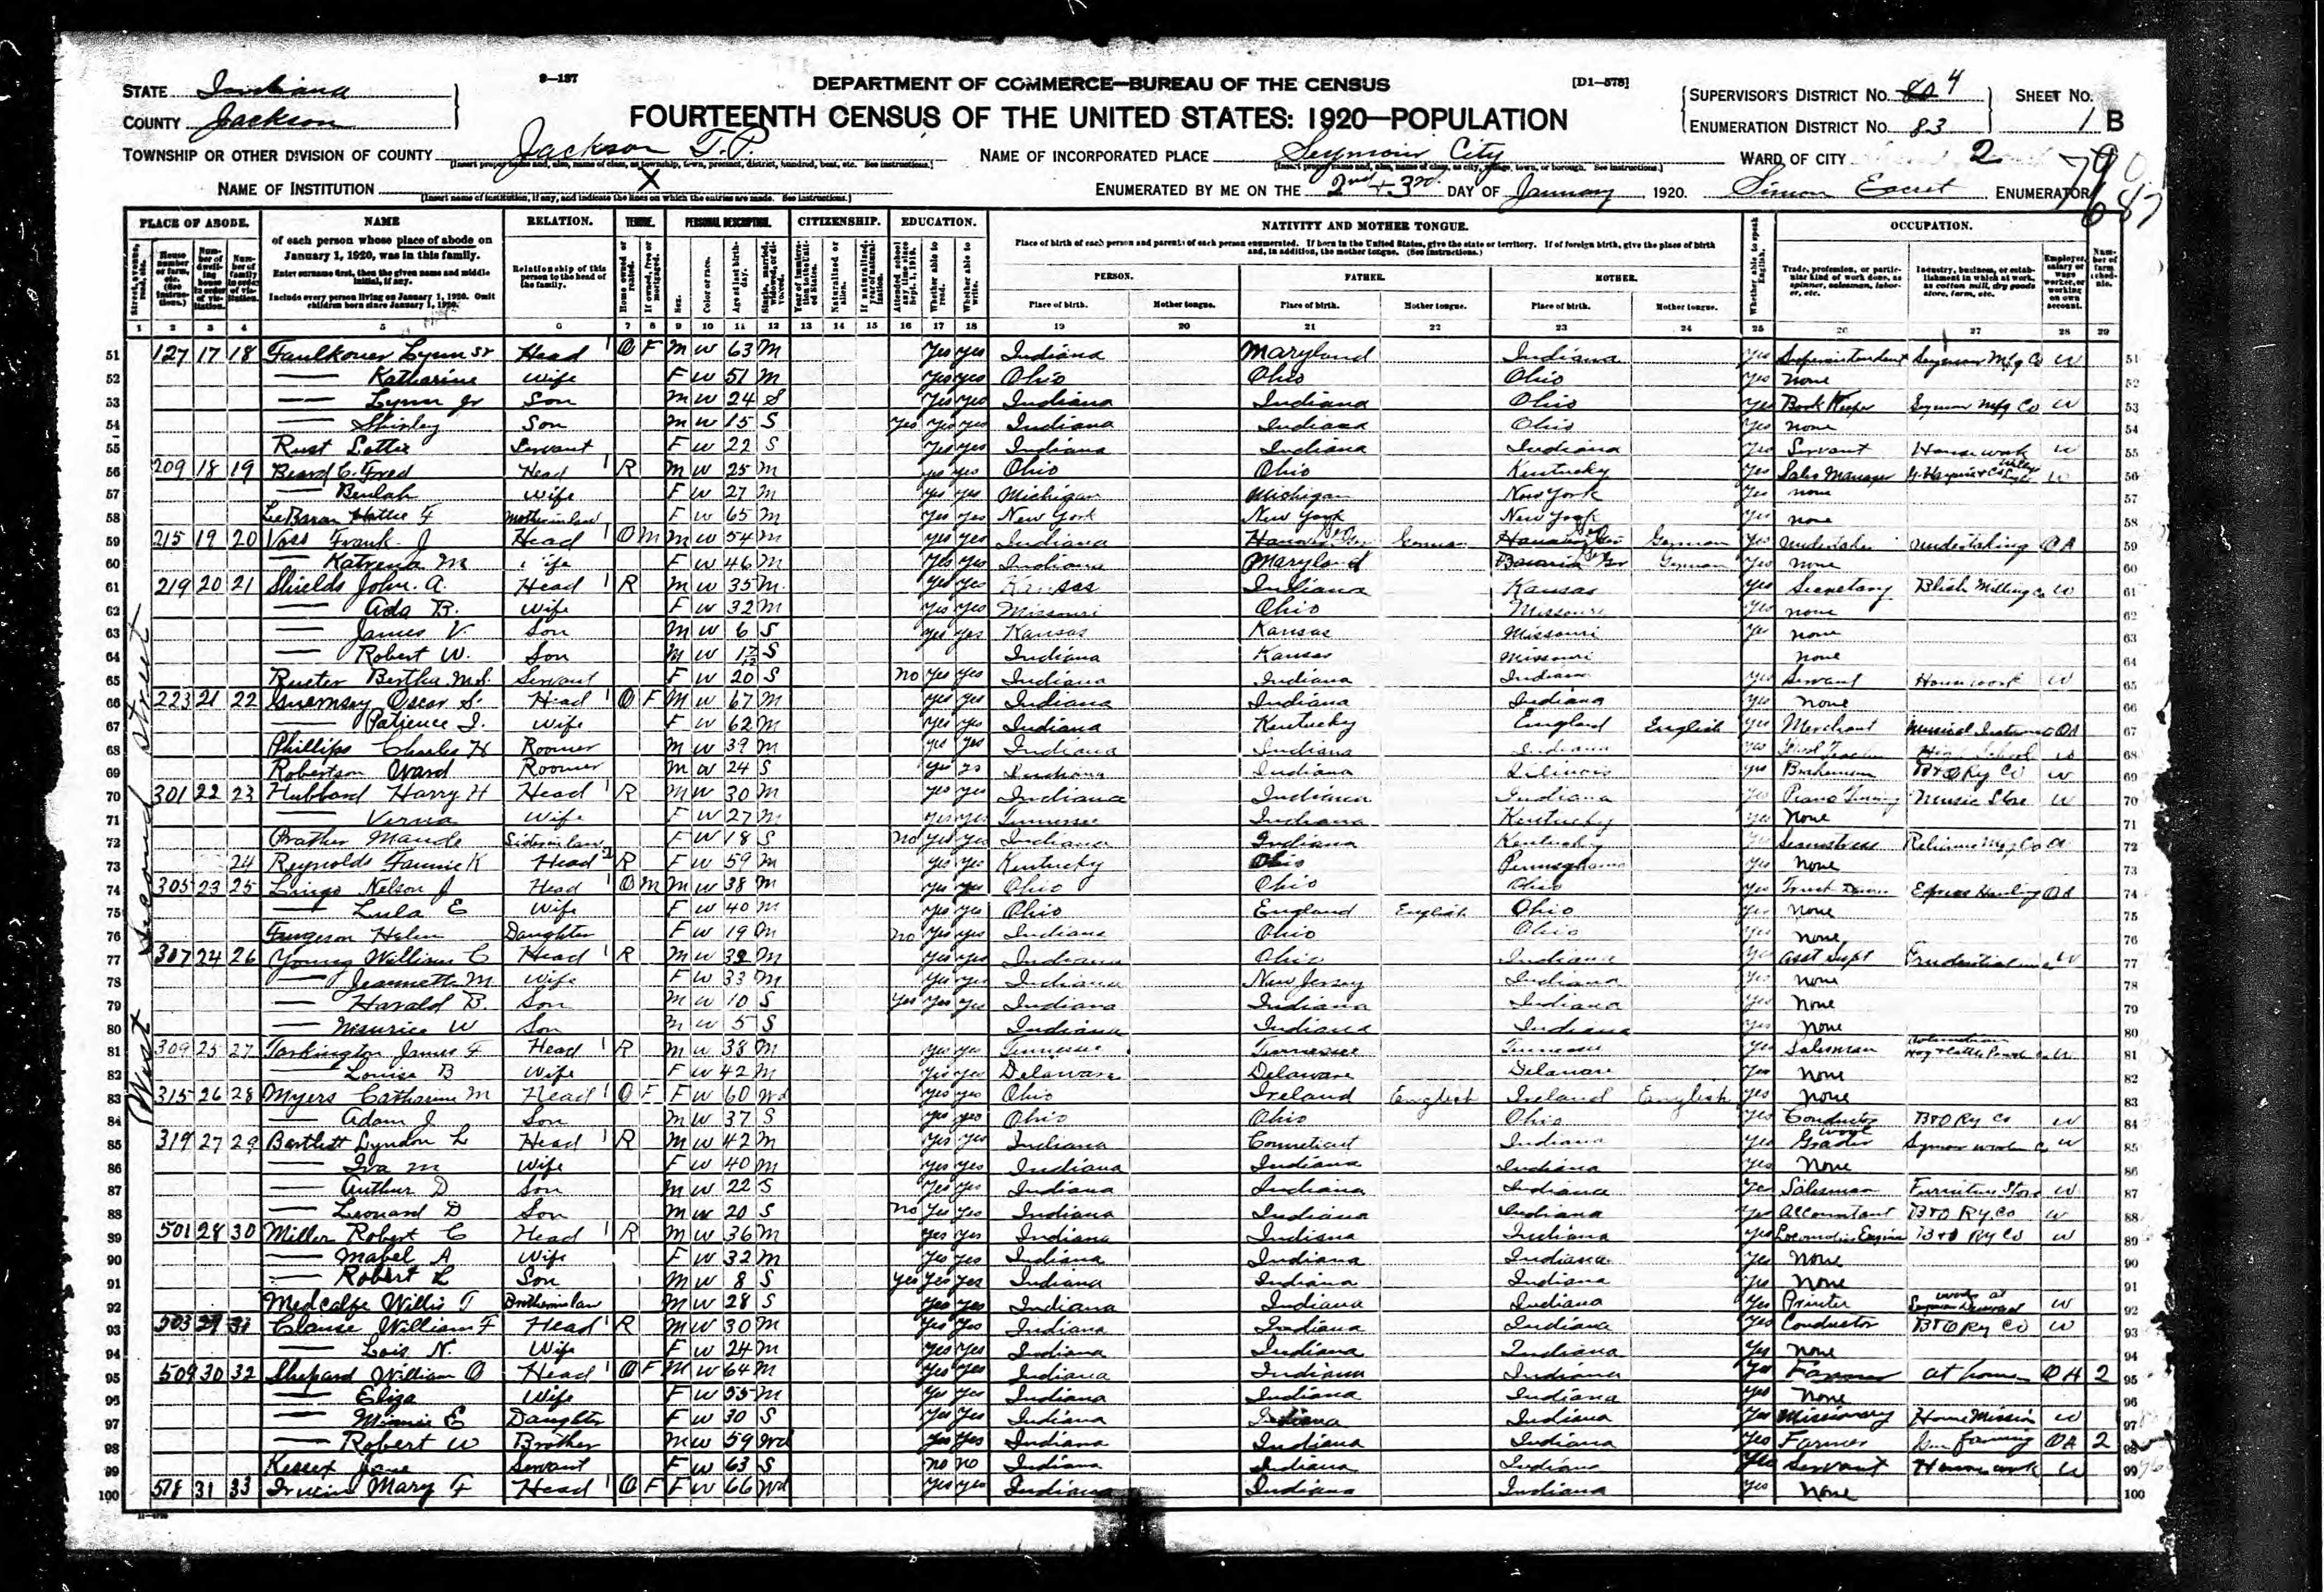 9—137
DEPARTMENT OF COMMERCE—BUREAU OF THE CENSUS
[D1—578]
STATE Indiana
COUNTY Jackson
FOURTEENTH CENSUS OF THE UNITED STATES: 1920—POPULATION
SUPERVISOR'S DISTRICT No. 4
ENUMERATION DISTRICT No. 83
SHEET No. 1 B
TOWNSHIP OR OTHER DIVISION OF COUNTY Jackson T.P.
NAME OF INCORPORATED PLACE Seymour City
WARD OF CITY 2
NAME OF INSTITUTION X
ENUMERATED BY ME ON THE 2nd + 3rd DAY OF January, 1920. Simon ENUMERATOR
PLACE OF ABODE. NAME RELATION. TENURE. PERSONAL DESCRIPTION. CITIZENSHIP. EDUCATION. NATIVITY AND MOTHER TONGUE. OCCUPATION.
of each person whose place of abode on January 1, 1920, was in this family.
Enter surname first, then the given name and middle initial, if any.
Include every person living on January 1, 1920. Omit children born since January 1, 1920.
Relationship of this person to the head of the family.
Place of birth of each person and parents of each person enumerated. If born in the United States, give the state or territory. If of foreign birth, give the place of birth and, in addition, the mother tongue. (See Instructions.)
PERSON. FATHER. MOTHER.
Place of birth. Mother tongue. Place of birth. Mother tongue. Place of birth. Mother tongue.
1 2 3 4 5 6 7 8 9 10 11 12 13 14 15 16 17 18 19 20 21 22 23 24 25 26 27 28 29
West Second Street
51 127 17 18 Faulkoner Lynn Sr Head 1 O F M W 63 M Yes Yes Indiana Maryland Indiana Yes Superintendent Seymour Mfg Co W
52 — Katharine Wife F W 51 M Yes Yes Ohio Ohio Ohio Yes None
53 — Lynn Jr Son M W 24 S Yes Yes Indiana Indiana Ohio Yes Book Keeper Seymour Mfg Co W
54 — Shirley Son M W 15 S Yes Yes Yes Indiana Indiana Ohio Yes None
55 Rust Lottie Servant F W 22 S Yes Yes Indiana Indiana Indiana Yes Servant House work W
56 209 18 19 Beard C. Fred Head 1 R M W 25 M Yes Yes Ohio Ohio Kentucky Yes Sales Manager W
57 — Beulah Wife F W 27 M Yes Yes Michigan Michigan New York Yes None
58 LeBaron Hattie F Mother in law F W 65 M Yes Yes New York New York New York Yes None
59 215 19 20 Voss Frank J Head 1 O M M W 54 M Yes Yes Indiana German German Yes Undertaker Undertaking OA
60 — Katrena M Wife F W 46 M Yes Yes Indiana Maryland German Yes None
61 219 20 21 Shields John A. Head 1 R M W 35 M Yes Yes Kansas Indiana Kansas Yes Secretary Blish Milling Co W
62 — Ada B. Wife F W 32 M Yes Yes Missouri Ohio Missouri Yes None
63 — James V. Son M W 6 S Yes Yes Kansas Kansas Missouri Yes None
64 — Robert W. Son M W S Indiana Kansas Missouri None
65 Rueter Bertha M.S. Servant F W 20 S No Yes Yes Indiana Indiana Indiana Yes Servant House work W
66 223 21 22 Guernsey Oscar S. Head 1 O F M W 67 M Yes Yes Indiana Indiana Indiana Yes None
67 — Patience J. Wife F W 62 M Yes Yes Indiana Kentucky England English Yes Merchant Musical Instrument OA
68 Phillips Charles H Roomer M W 39 M Yes Yes Indiana Indiana Indiana Yes School Teacher High School W
69 Robertson Ward Roomer M W 24 S Yes Yes Indiana Indiana Illinois Yes Brakeman B+O Ry Co W
70 301 22 23 Hubbard Harry H Head 1 R M W 30 M Yes Yes Indiana Indiana Indiana Yes Piano Tuning Music Store W
71 — Verna Wife F W 27 M Yes Yes Tennessee Indiana Kentucky Yes None
72 Prather Maude Sister in law F W 18 S No Yes Yes Indiana Indiana Kentucky Yes Seamstress Reliance Mfg Co W
73 24 Reynolds Fannie K Head 2 R F W 59 M Yes Yes Kentucky Ohio Pennsylvania Yes None
74 305 23 25 Lingo Nelson J Head 1 O M M W 38 M Yes Yes Ohio Ohio Ohio Yes Truck Driver Express Hauling OA
75 — Lula E Wife F W 40 M Yes Yes Ohio England English Ohio Yes None
76 Furgeson Helen Daughter F W 19 M No Yes Yes Indiana Ohio Ohio Yes None
77 307 24 26 Young William C Head 1 R M W 38 M Yes Yes Indiana Ohio Indiana Yes Asst Supt Prudential W
78 — Jeannette M Wife F W 33 M Yes Yes Indiana New Jersey Indiana Yes None
79 — Harald B. Son M W 10 S Yes Yes Yes Indiana Indiana Indiana Yes None
80 — Maurice W Son M W 5 S Indiana Indiana Indiana Yes None
81 309 25 27 Tarkington James F Head 1 R M W 38 M Yes Yes Tennessee Tennessee Tennessee Yes Salesman W
82 — Louise B Wife F W 42 M Yes Yes Delaware Delaware Delaware Yes None
83 315 26 28 Myers Catharine M Head 1 O F F W 60 Wd Yes Yes Ohio Ireland English Ireland English Yes None
84 — Adam J Son M W 37 S Yes Yes Ohio Ohio Ohio Yes Conductor B+O Ry Co W
85 319 27 29 Bartlett Lyndon L Head 1 R M W 42 M Yes Yes Indiana Conneticut Indiana Yes Wool Grader Seymour Woolen Co W
86 — Iva M Wife F W 40 M Yes Yes Indiana Indiana Indiana Yes None
87 — Authur D Son M W 22 S Yes Yes Indiana Indiana Indiana Yes Salesman Furniture Store W
88 — Leonard D Son M W 20 S No Yes Yes Indiana Indiana Indiana Yes Accountant B+O Ry. Co W
89 501 28 30 Miller Robert C Head 1 R M W 36 M Yes Yes Indiana Indiana Indiana Yes Locomotive Engine B+O Ry Co W
90 — Mabel A Wife F W 32 M Yes Yes Indiana Indiana Indiana Yes None
91 — Robert L Son M W 8 S Yes Yes Yes Indiana Indiana Indiana Yes None
92 Medcalfe Willis T Brother in law M W 28 S Yes Yes Indiana Indiana Indiana Yes Printer W
93 503 29 31 Clause William F Head 1 R M W 30 M Yes Yes Indiana Indiana Indiana Yes Conductor B+O Ry Co W
94 — Lois N. Wife F W 24 M Yes Yes Indiana Indiana Indiana Yes None
95 509 30 32 Shepard William O Head 1 O F M W 64 M Yes Yes Indiana Indiana Indiana Yes Farmer at home OA 2
96 — Eliza Wife F W 55 M Yes Yes Indiana Indiana Indiana Yes None
97 — Minnie E Daughter F W 30 S Yes Yes Indiana Indiana Indiana Yes Missionary Home Mission W
98 — Robert W Brother M W 59 Wd Yes Yes Indiana Indiana Indiana Yes Farmer Farming OA 2
99 Jane Servant F W 63 S No No Indiana Indiana Indiana Yes Servant House work W
100 31 33 Irwin Mary F Head 1 O F F W 66 Wd Yes Yes Indiana Indiana Indiana Yes None